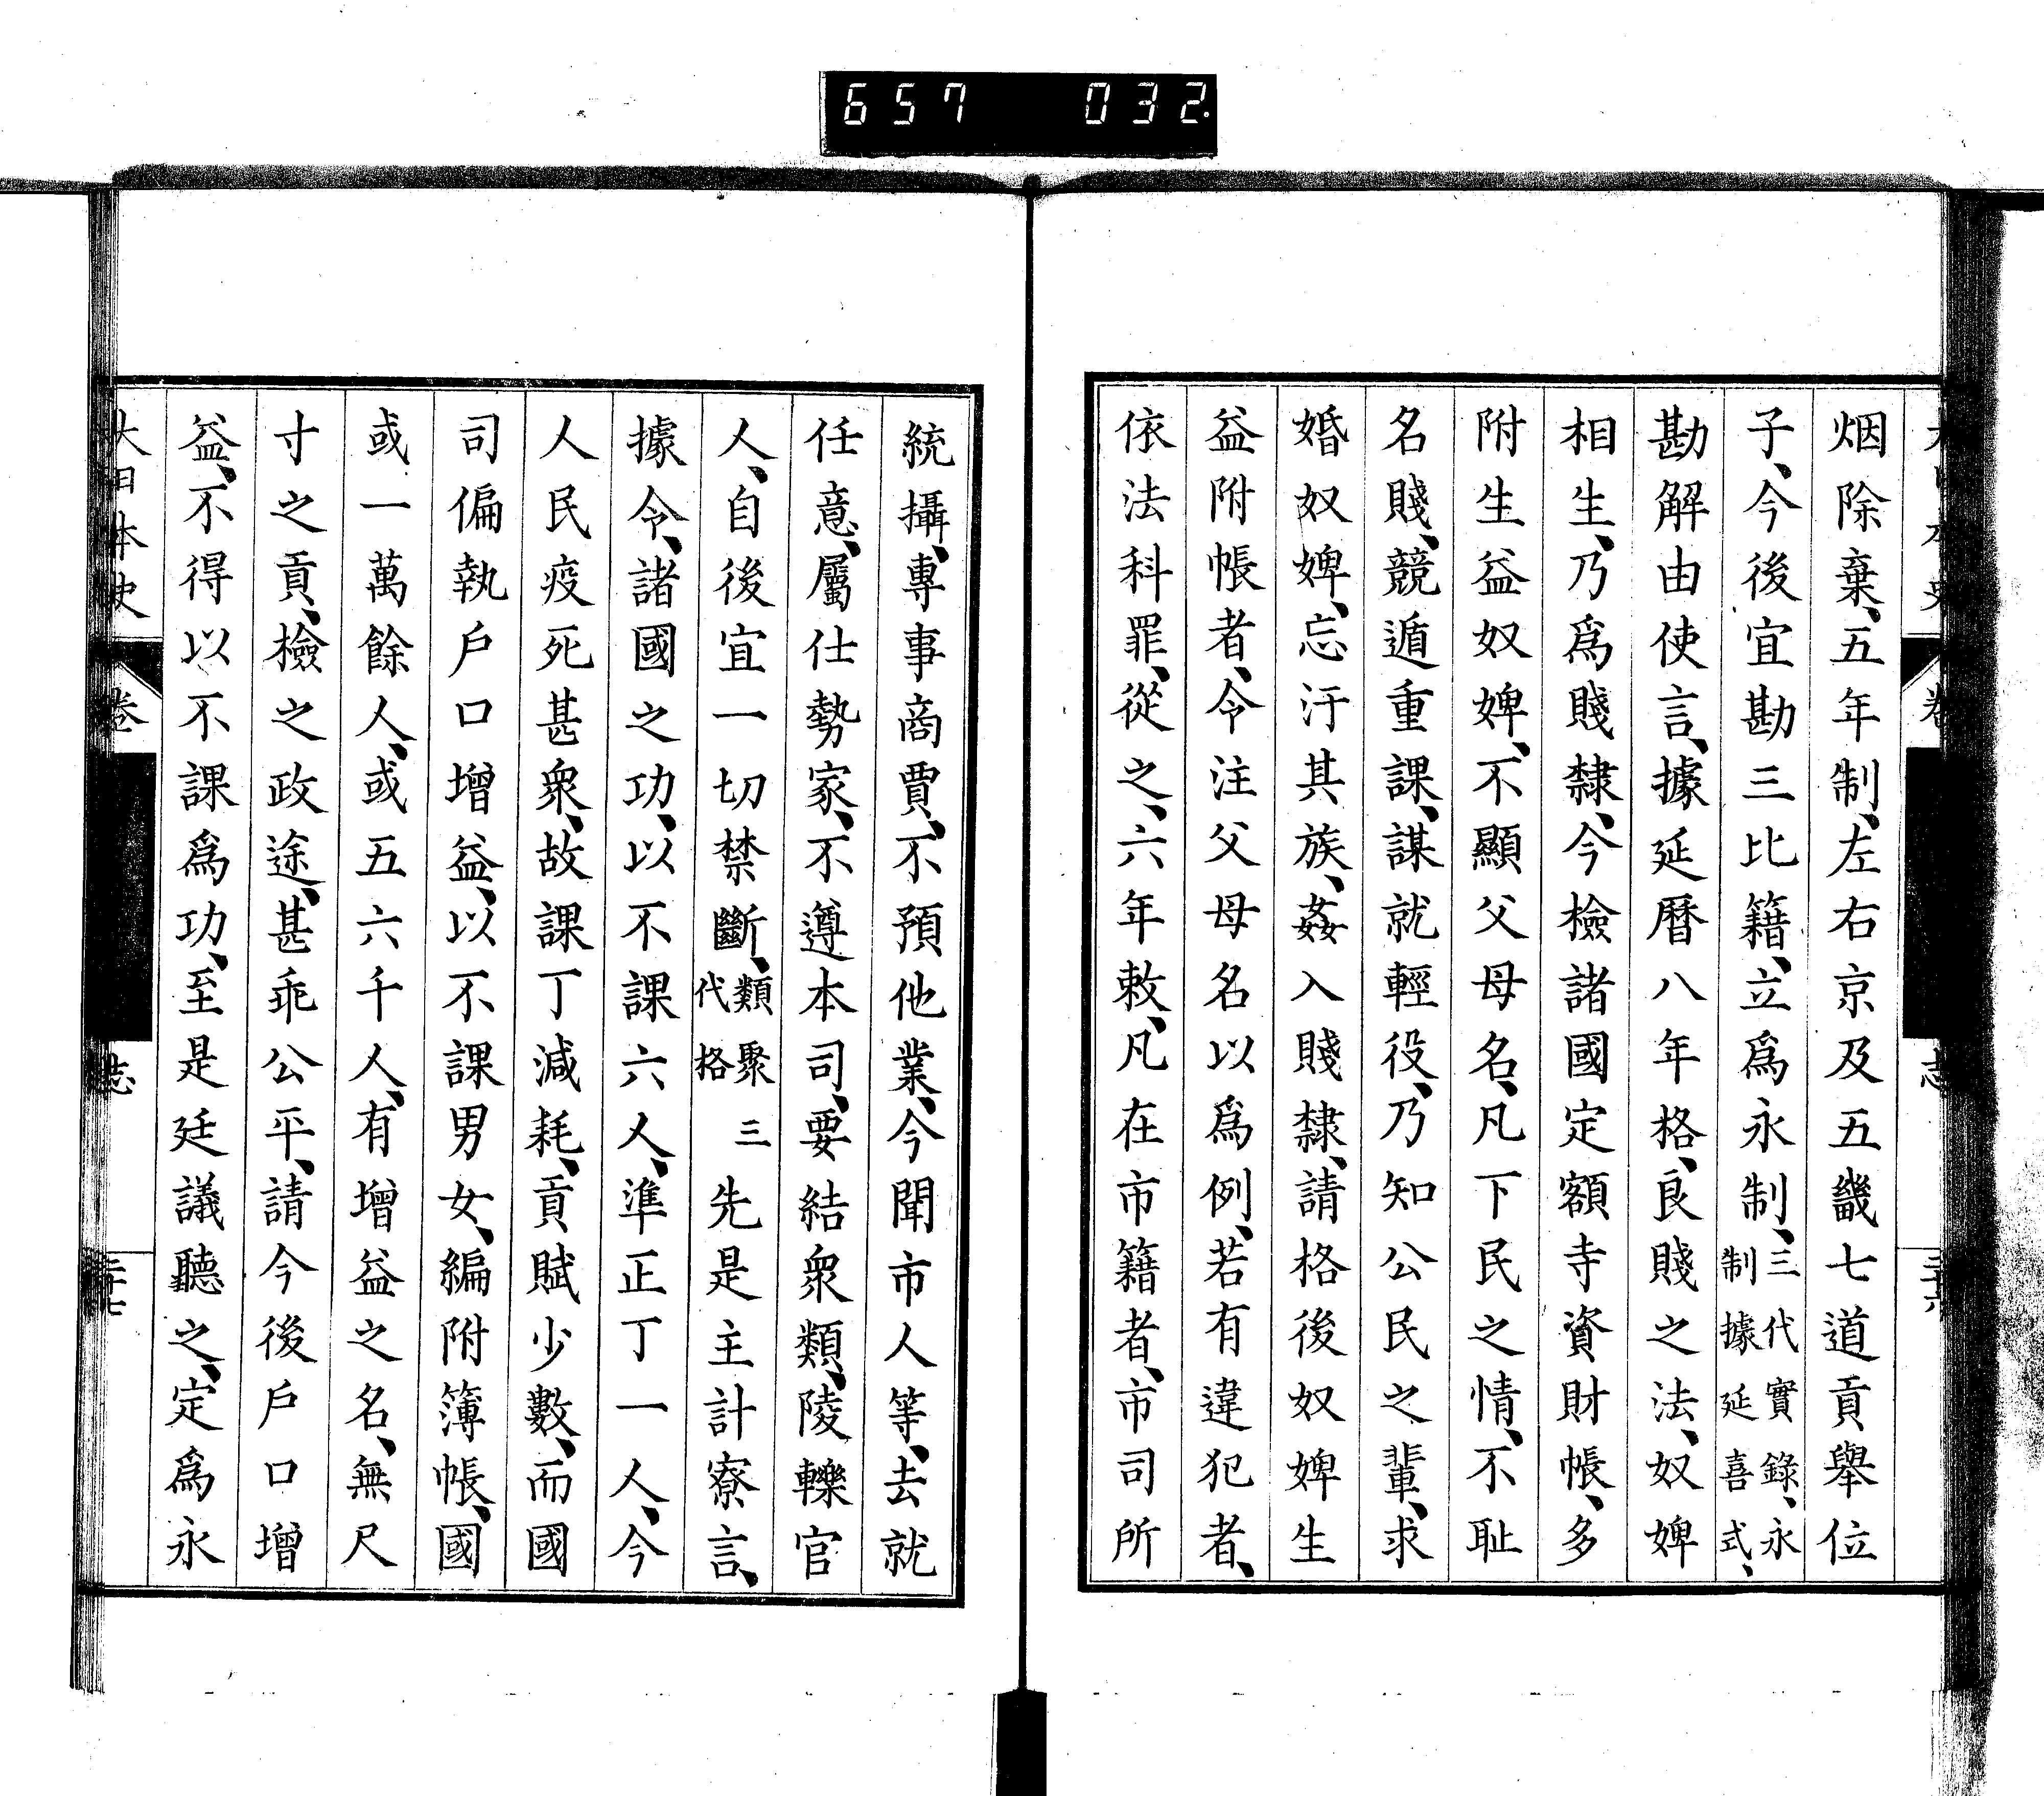 657 032.
烟除棄、五年制、左右京及五畿七道貢舉位
子、今後宜勘三比籍、立爲永制、三代實錄、永制據延喜式、
勘解由使言、據延曆八年格、良賤之法、奴婢
相生、乃爲賤隸、今檢諸國定額寺資財帳、多
附生益奴婢、不顯父母名、凡下民之情、不耻
名賤、競遁重課、謀就輕役、乃知公民之輩、求
婚奴婢、忘汙其族、姦入賤隸、請格後奴婢生
益附帳者、令注父母名以爲例、若有違犯者、
依法科罪、從之、六年敕、凡在市籍者、市司所
統攝、專事商賈、不預他業、今聞市人等、去就
任意、屬仕勢家、不遵本司、要結衆類、陵轢官
人、自後宜一切禁斷、類聚三代格先是主計寮言、
據令、諸國之功、以不課六人、準正丁一人、今
人民疫死甚衆、故課丁減耗、貢賦少數、而國
司偏執戶口增益、以不課男女、編附簿帳、國
或一萬餘人、或五六千人、有增益之名、無尺
寸之貢、檢之政途、甚乖公平、請今後戶口增
益、不得以不課爲功、至是廷議聽之、定爲永
大日本史 卷 志 三十七